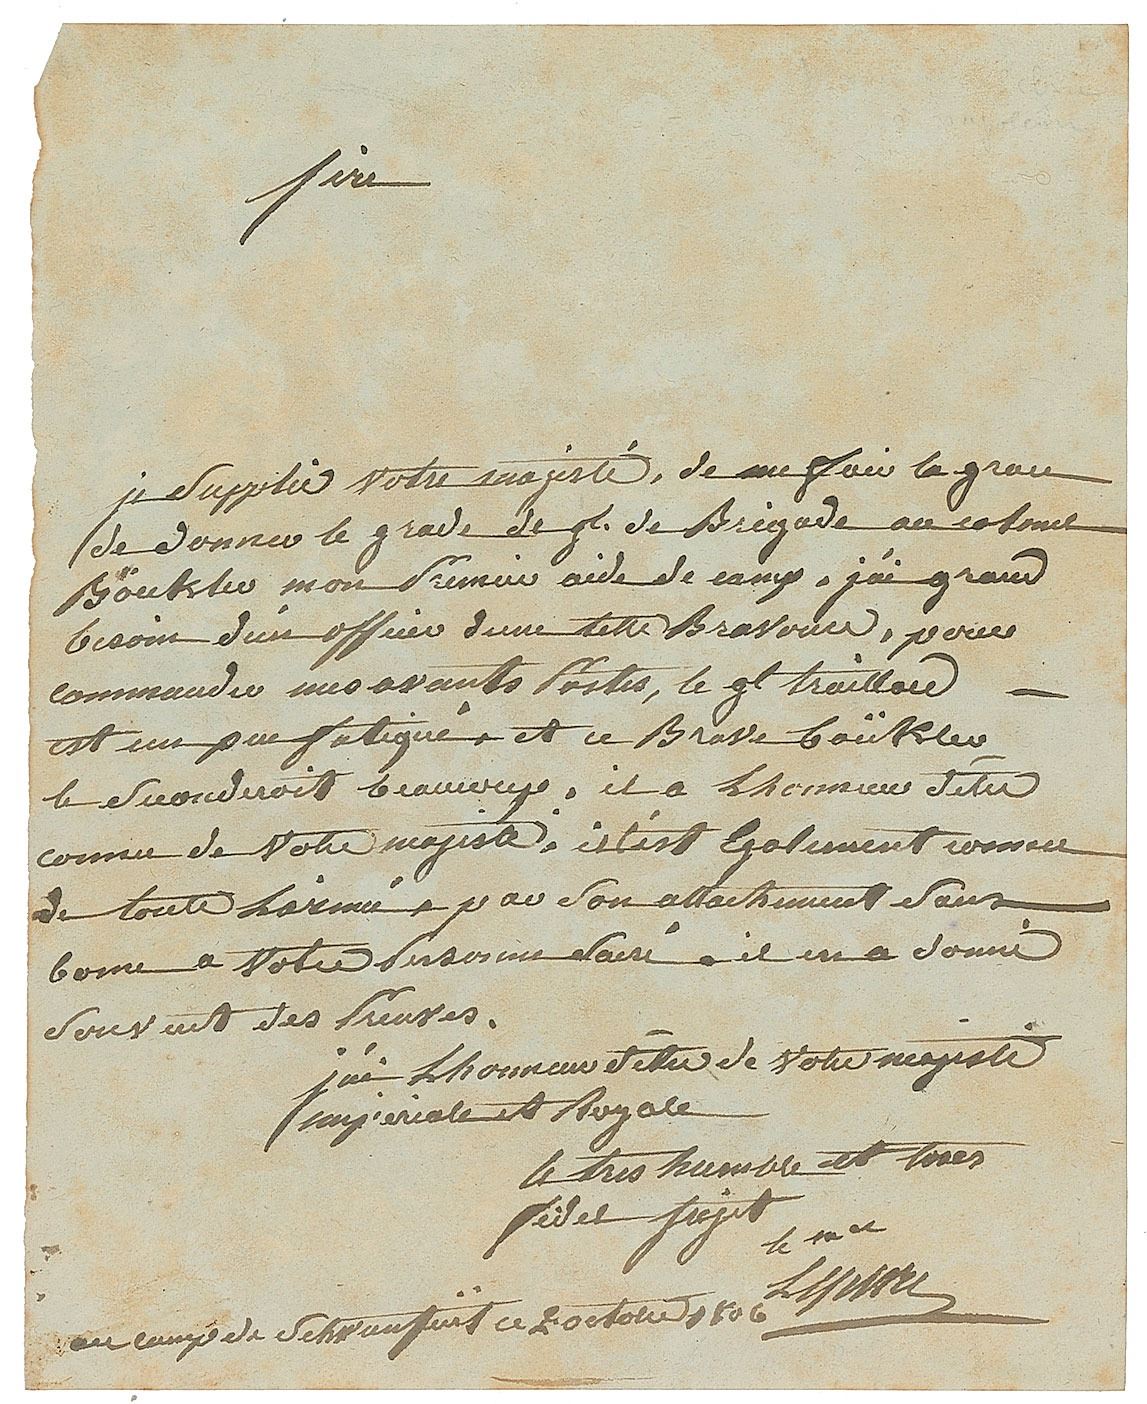 Sire
je Supplie Votre majesté, de me faire la grace
de donner le grade de gl. de Brigade au colonel
Böukler mon Premier aide de camp, j'ai grand
besoin d'un officier d'une telle Bravoure, pour
commander mes avants Postes, le gl trailloird
est un peu fatigué, et ce Brave boükler
le seconderoit beaucoup, il a Lhonneur d'être
connu de Votre majesté, il ést Egalement connu
de toute L'armé, par Son attachement Sans
borne a Votre Personne Sacré, il en a donné
Souvent des Preuves.
j'ai Lhonneur d'être de Votre majesté
impériale et Royale
le tres humble et tres
fidel Sujet
le mal
Lefebvre
au camp de Schvanfürt ce 2 octobre 1806